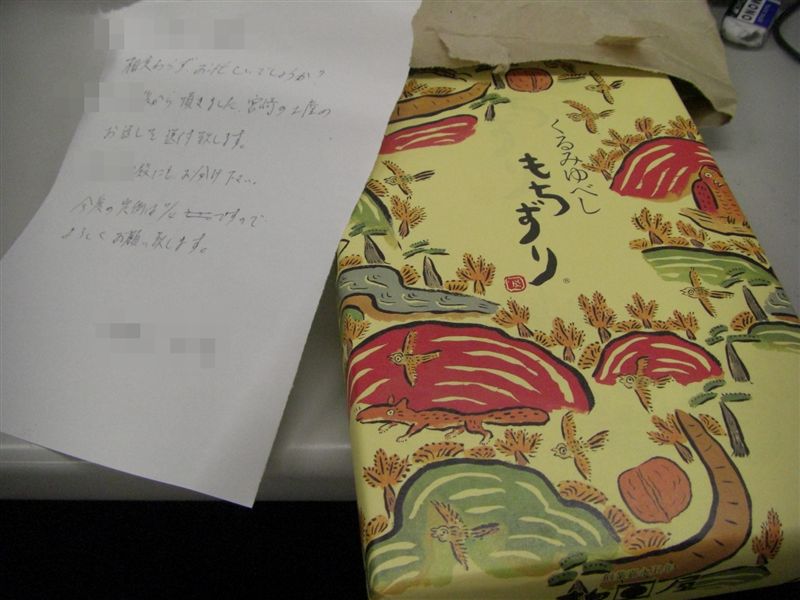 相変わらずお忙しいでしょうか?
から頂きました宮崎の土産の
お返しを送付致します。
にもお分け下さい。
ですので
よろしくお願い致します。
くるみゆべし
もちずり
MONO